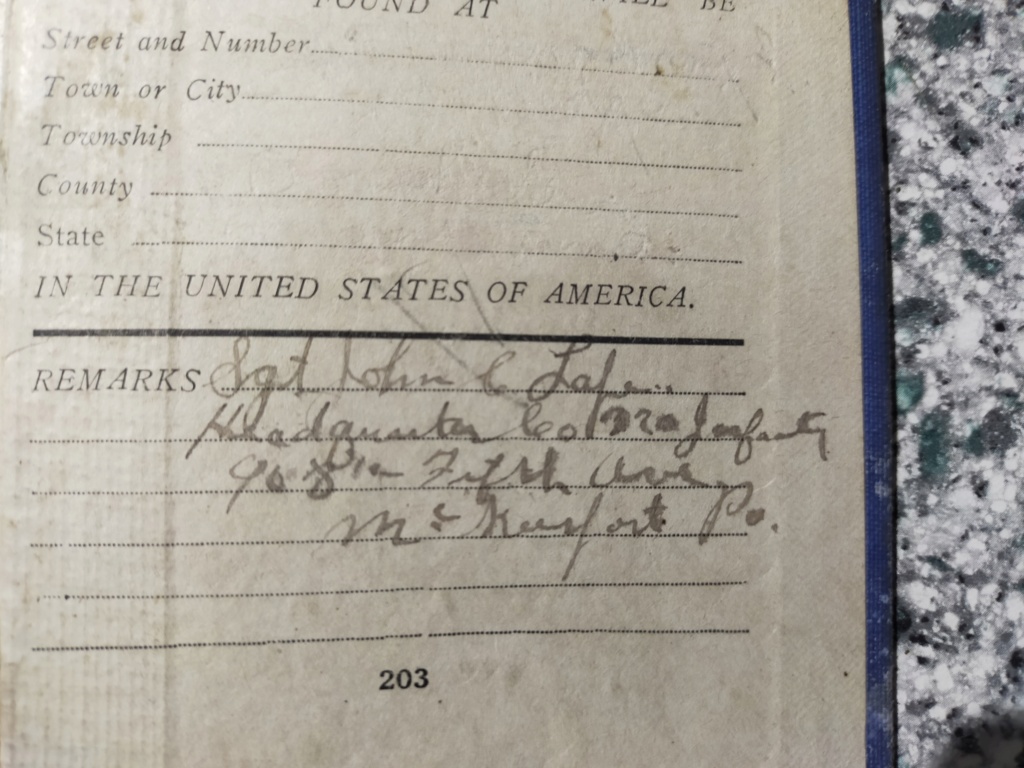 FOUND AT WILL BE
Street and Number
Town or City
Township
County
State
IN THE UNITED STATES OF AMERICA.
REMARKS Sgt John C
Headquarter Co Infanty
Fifth Ave
Mc Keesport Pa.
203